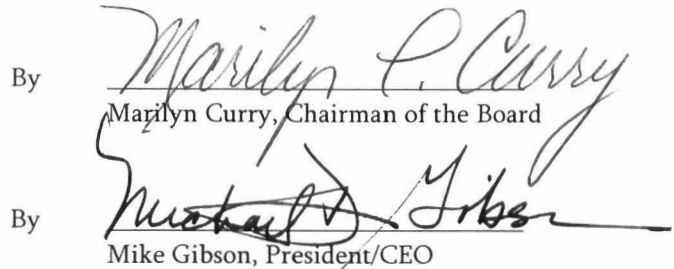 By Marilyn P. Curry
Marilyn Curry, Chairman of the Board
By Michael D. Gibson
Mike Gibson, President/CEO